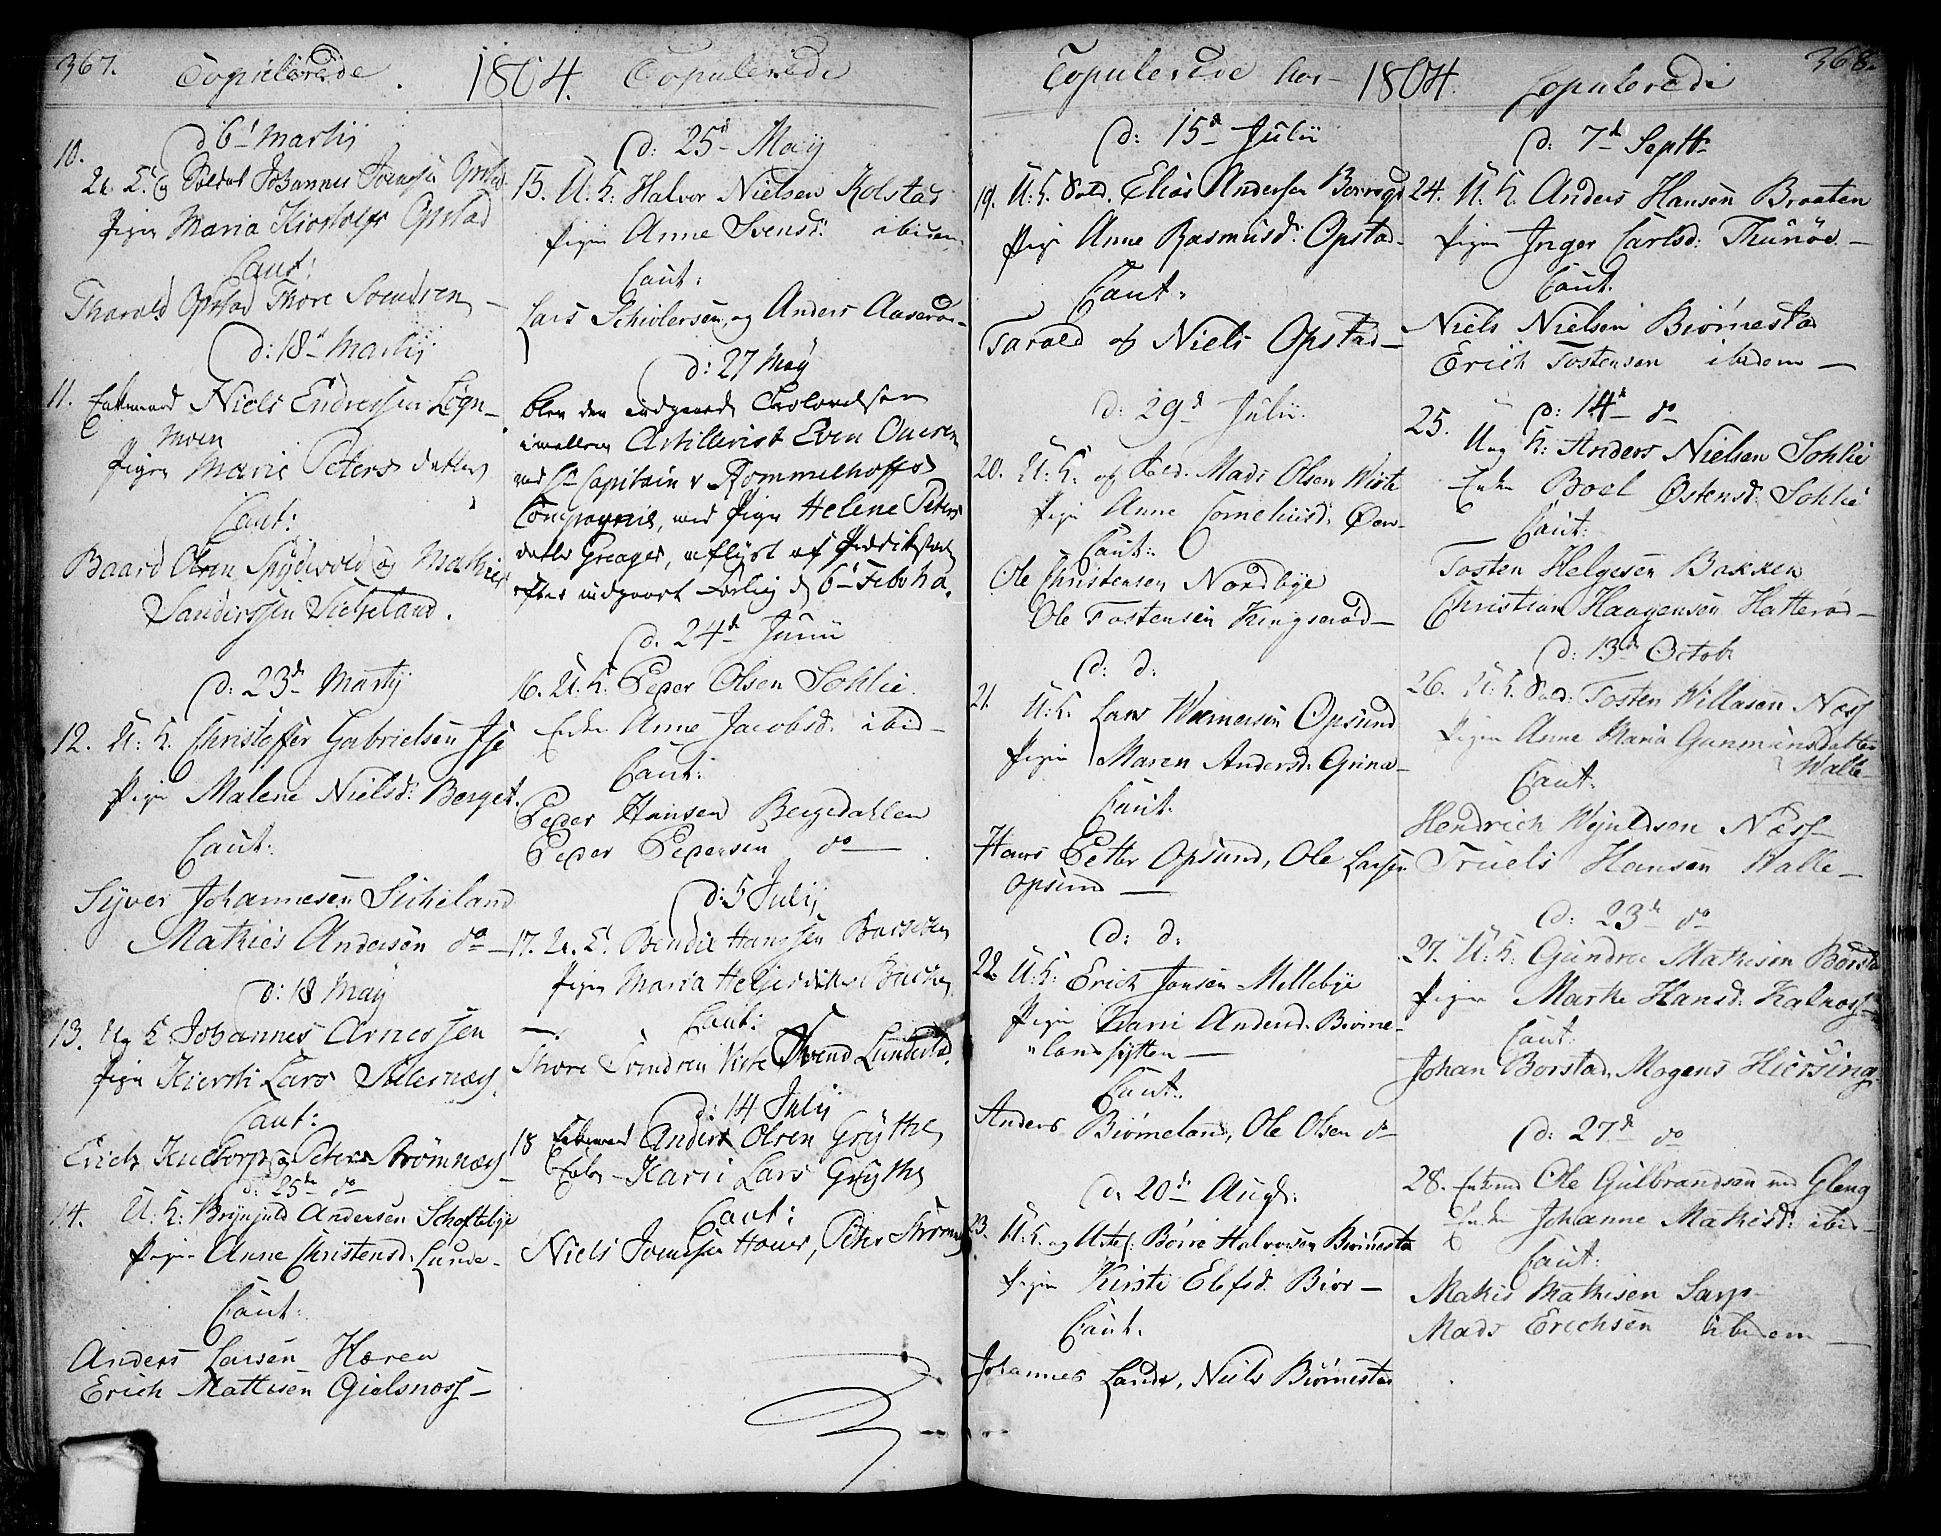 367.
Copulerede 1804. Copulerede
d 6t Martij
10. U. K. og Soldat Johannes Opstad
Pigen Maria Opstad
Caut:
Tharald Opstad Thore Svendsen
d: 18d Martij
11. Enkemand Niels Endressen Løgn-
moen
Pigen Marie Peters datter
Caut:
Baard Olsen Spydevold og Mathies
Sanderssen Sikeland.
d: 23d Martij
12. U: K. Christoffer Gabrielsen Ise
Pigen Malene Nielsd: Berget.
Caut:
Syver Johannesen Sikeland
Mathies Andersen do
d: 18 May
13. Ug K Johannes Arnessen
Pigen Kiersti Lars
Caut:
Erich og Peter Strømnæs
d: 25de do
14. U: K: Brynjuld Andersen Schoftebye
Pigen Anne Christensd: Lunde-
Caut:
Anders Larsen Hæren
Erich Mattisen Gielsnæss
d: 25d May
15. U: K: Halvor Nielsen Kolstad
Pigen Anne Svensd: ibidem
Caut:
Lars Schiolersen, og Anders Aaserød
d: 27 May
blev den indgaaede Trolovelsen
imellem Artillerist Even Onesen
ved Hr Capitain v Rommelhoffs
Compagnie, med Pigen Helene Peters
datter Greager, aflyst af Fredrikstad
efter indgaaet Forlig d 6t Febr h: a.
d. 24d Junii
16. U. K: Peder Olsen Sohlie.
Enken Anne Jacobsd: ibid-
Caut:
Peder Hansen Bergedahlen
Peder Pedersen do
d: 5 Julij
17. U. K. Bendix Hanssen
Pigen Maria
Caut:
Thore Svendsen Svend Lundestad.
d: 14 Julij
18 Enkemand Anders Olsen Grythe
Enken Karri Lars Grythe
Caut:
Niels Joenssen Hauer, Peter
Copulerede Aar 1804. Copulerede
368.
d: 15d Julii
19. U: K. Sold. Elias Andersen
Pige Anne Rasmusd: Opstad
Caut:
Tarald og Niels Opstad
d: 29d Julii.
20. U: K: og Sold: Mads Olsen Wiste
Pige Anne Corneliusd:
Caut:
Ole Christensen Nordbye
Ole Tostensen Kingserød
d: d:
21. U: K. Lars Wernersen Opsund
Pigen Maren Andersd: Grina
Caut:
Hans Petter Opsund, Ole Larsen
Opsund
d: d:
22. U: K: Erich Jonsen Mellebye
Pigen Karri Andersd: Biørne-
landsfytten
Caut:
Anders Biørneland, Ole Olsen do
d. 20d Augt:
23. U: K. og Børre Halvorsen Biørnestad
Pigen Kirsti Elefsd: Biør
Caut.
Johannes Lande, Niels Biørnestad
d: 7d Septbr
24. U: K. Anders Hansen Braaten
Pigen Inger Carlsd: Thunøe
Caut.
Niels Nielsen Biørnestad
Erich Tostensen ibidem
d: 14d do
25. Ung K: Anders Nielsen Sohlie
Enken Boel Østensd: Sohlie
Caut:
Tosten Helgesen Bakken
Christian Haagensen Hatterød
d: 13d Octobr
26. U: K. Sold: Tosten Willasen Næss
Pigen Anne Maria Gunmunsdatter
Walle
Caut:
Hendrich Wejuldsen Næss
Truels Hansen Walle
d: 23d do
27. U: K: Gundro Mathisen Borstad
Pigen Marthe Hansd: Kalnæss
Caut:
Johan Borstad, Mogens Hiersing
d: 27d do
28. Enkemd Ole Gulbrandsen ved Gleng
Enken Johanne Mathisd: ibid
Caut:
Mathis Mathisen Sarp-
Mads Erichsen ibidem